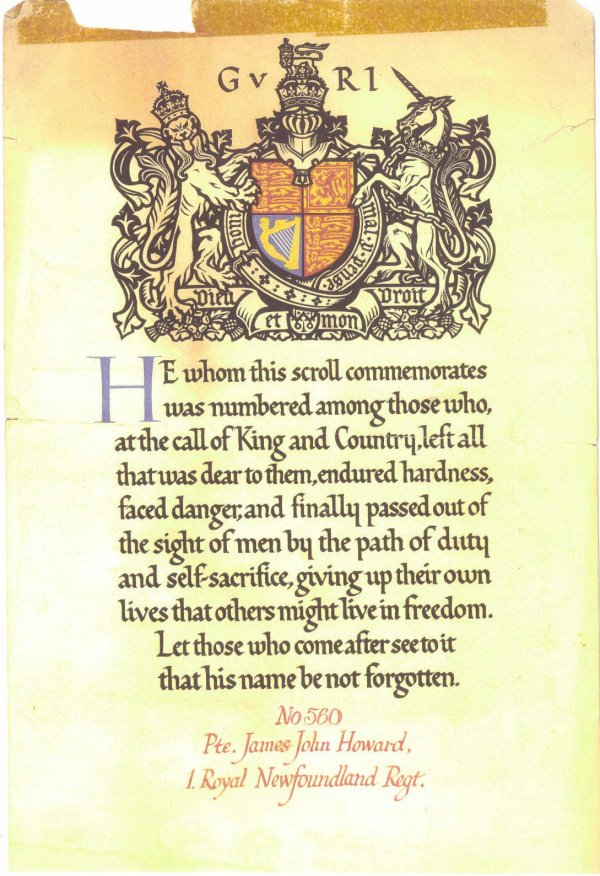 G V R I
mal·y·pense
Dieu et mon Droit
HE whom this scroll commemorates
was numbered among those who,
at the call of King and Country, left all
that was dear to them, endured hardness,
faced danger, and finally passed out of
the sight of men by the path of duty
and self-sacrifice, giving up their own
lives that others might live in freedom.
Let those who come after see to it
that his name be not forgotten.
No 560
Pte. James John Howard,
1. Royal Newfoundland Regt.